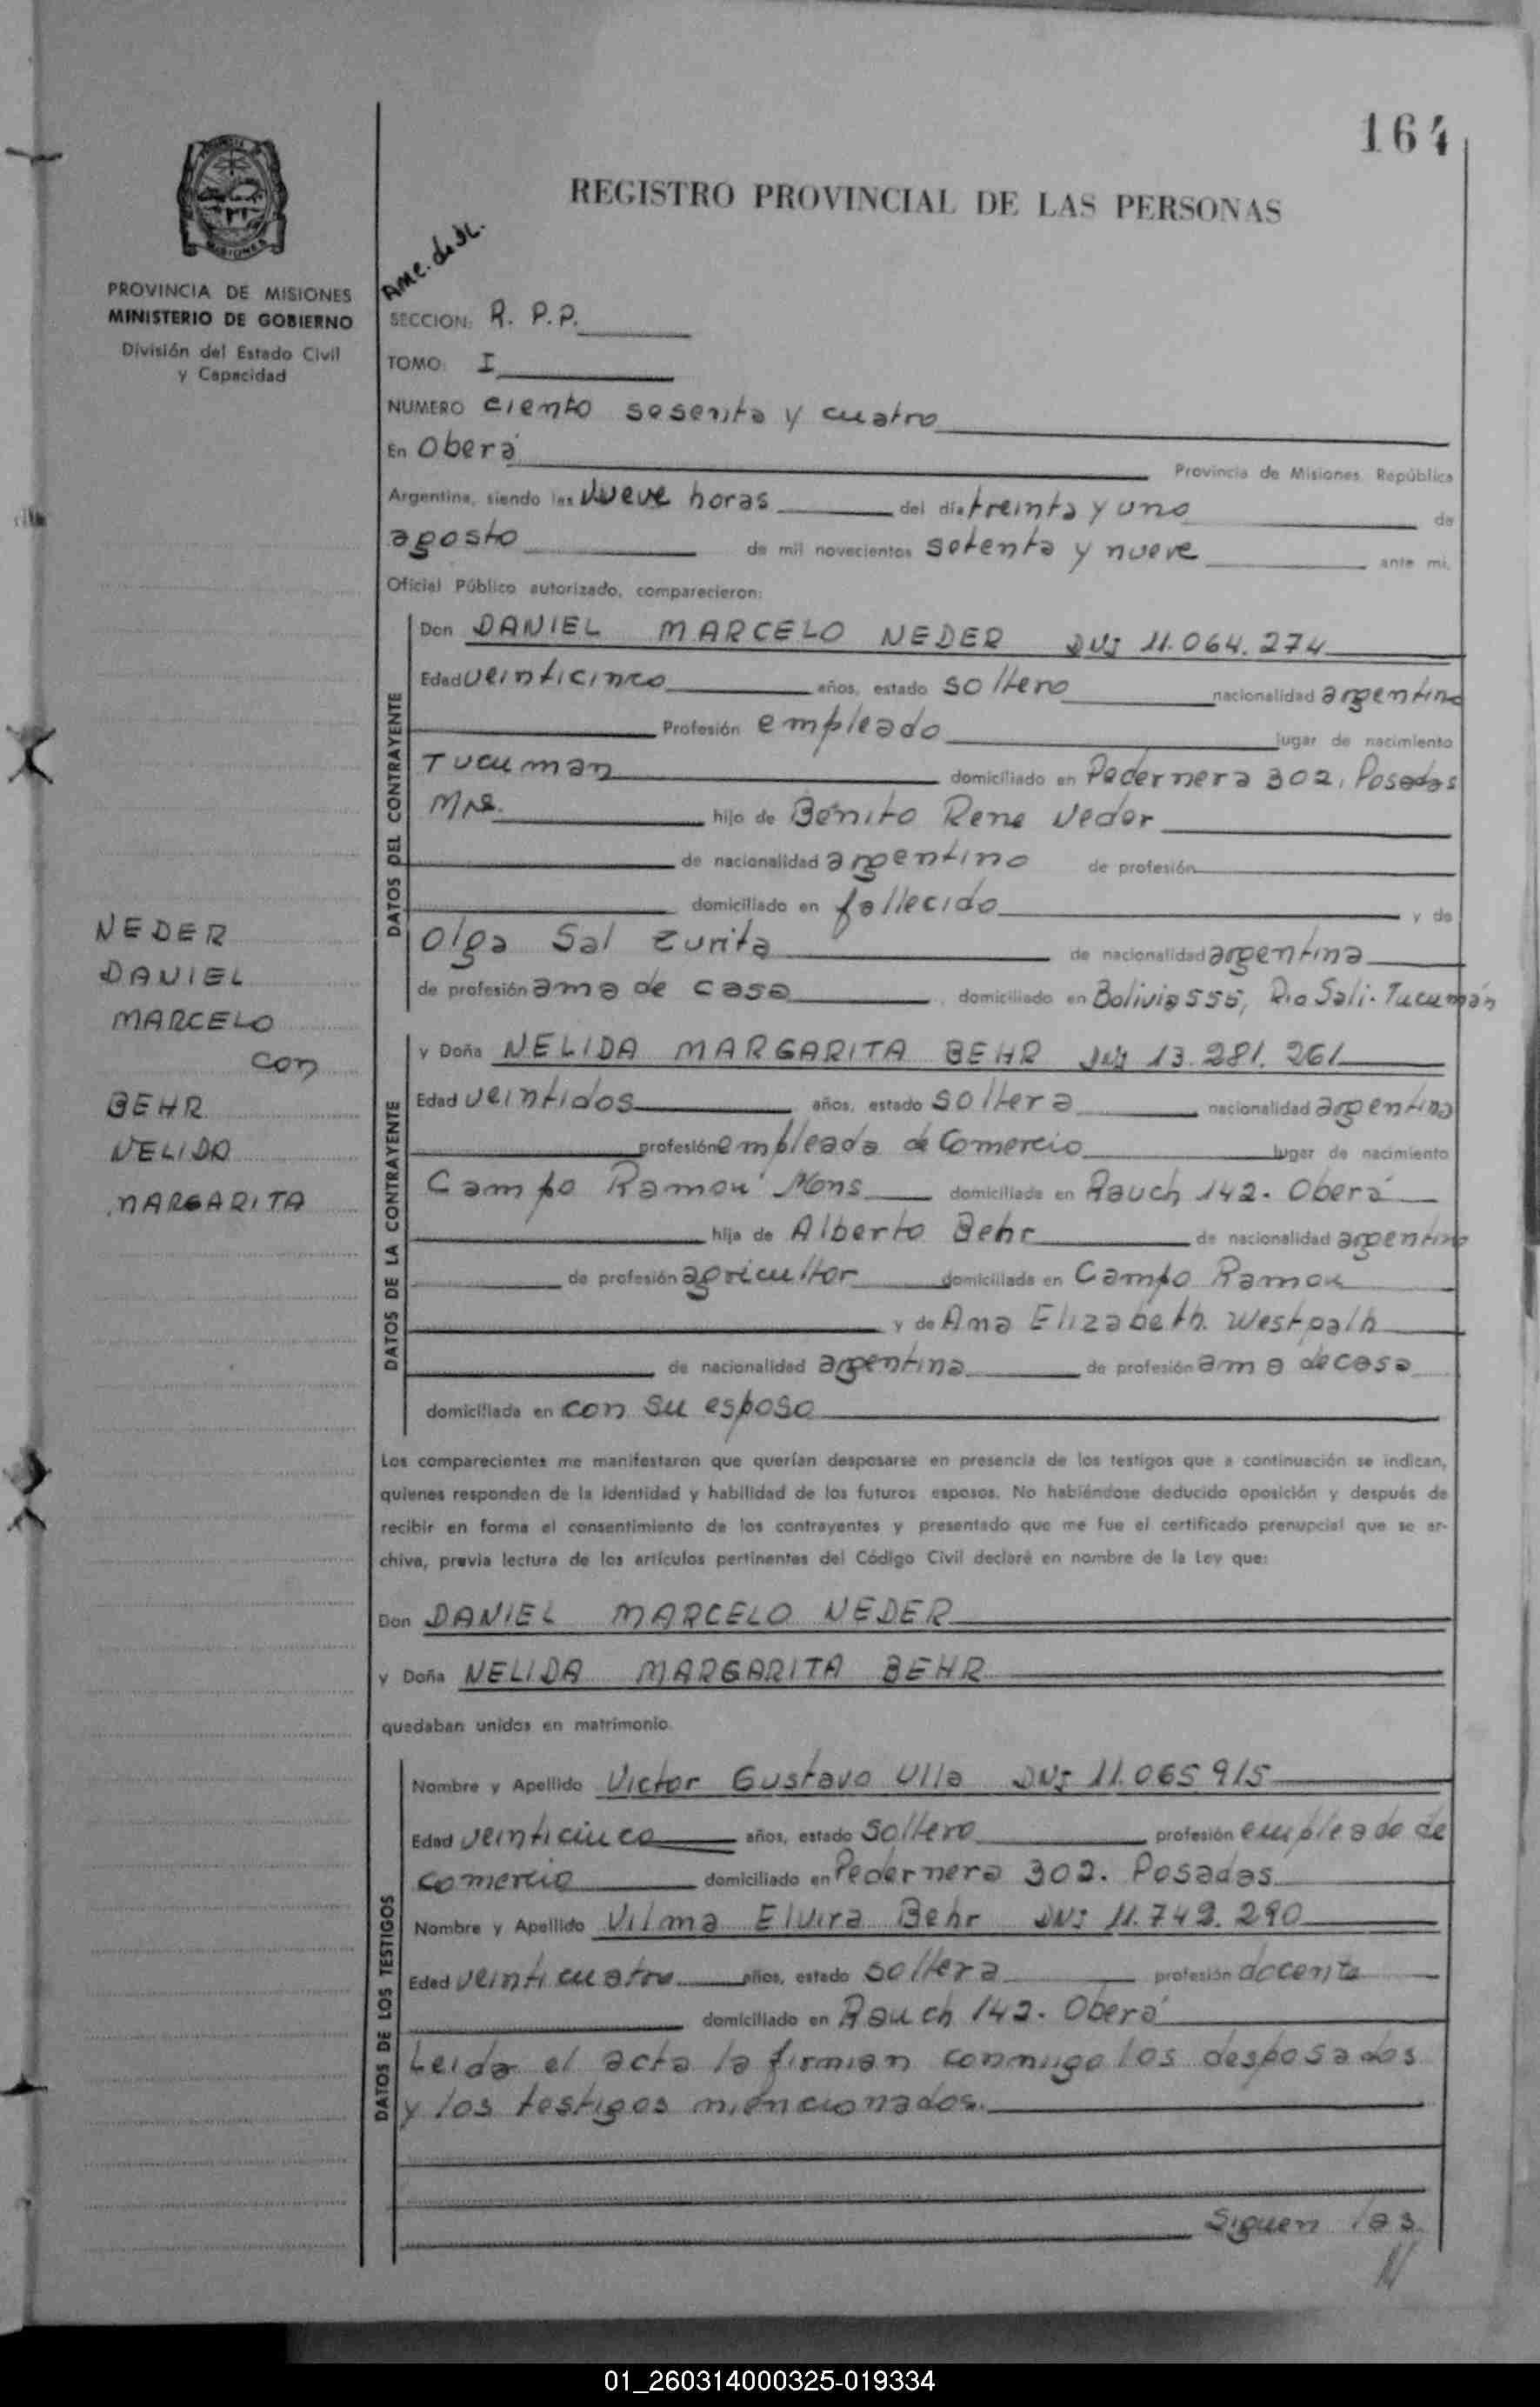 164
REGISTRO PROVINCIAL DE LAS PERSONAS
MISIONES
PROVINCIA DE MISIONES
MINISTERIO DE GOBIERNO
División del Estado Civil
y Capacidad
SECCION: R. P.P.
TOMO: I
NUMERO ciento sesenta y cuatro
En Oberá
Provincia de Misiones, República
Argentina, siendo las Nueve horas del día treinta y uno de
agosto de mil novecientos setenta y nueve ante mí,
Oficial Público autorizado, comparecieron:
DATOS DEL CONTRAYENTE
Don DANIEL MARCELO NEDER DNI 11.064.274
Edad veinticinco años, estado soltero nacionalidad argentino
Profesión empleado lugar de nacimiento
Tucuman domiciliado en Pedernera 302, Posadas
Mns. hijo de Benito Rene Neder
de nacionalidad argentino de profesión
domiciliado en fallecido y de
Olga Sal Zurita de nacionalidad argentina
de profesión ama de casa domiciliado en Bolivia 555, Rio Sali-Tucumán
NEDER
DANIEL
MARCELO
con
BEHR
NELIDA
MARGARITA
DATOS DE LA CONTRAYENTE
y Doña NELIDA MARGARITA BEHR DNI 13.281.261
Edad veintidos años, estado soltera nacionalidad argentina
profesión empleada de Comercio lugar de nacimiento
Campo Ramon Mns domiciliada en Rauch 142. Oberá
hija de Alberto Behr de nacionalidad argentino
de profesión agricultor domiciliada en Campo Ramon
y de Ana Elizabeth Westpalh
de nacionalidad argentina de profesión ama de casa
domiciliada en con su esposo
Los comparecientes me manifestaron que querían desposarse en presencia de los testigos que a continuación se indican,
quienes responden de la identidad y habilidad de los futuros esposos. No habiéndose deducido oposición y después de
recibir en forma el consentimiento de los contrayentes y presentado que me fue el certificado prenupcial que se ar-
chiva, previa lectura de los artículos pertinentes del Código Civil declaré en nombre de la Ley que:
Don DANIEL MARCELO NEDER
y Doña NELIDA MARGARITA BEHR
quedaban unidos en matrimonio.
DATOS DE LOS TESTIGOS
Nombre y Apellido Victor Gustavo Ulla DNI 11.065.915
Edad veinticinco años, estado soltero profesión empleado de
comercio domiciliado en Pedernera 302. Posadas
Nombre y Apellido Vilma Elvira Behr DNI 11.749.290
Edad veinticuatro años, estado soltera profesión docente
domiciliado en Rauch 142. Oberá
Leida el acta la firman conmigo los desposados
y los testigos mencionados.
Siguen las
01_260314000325-019334